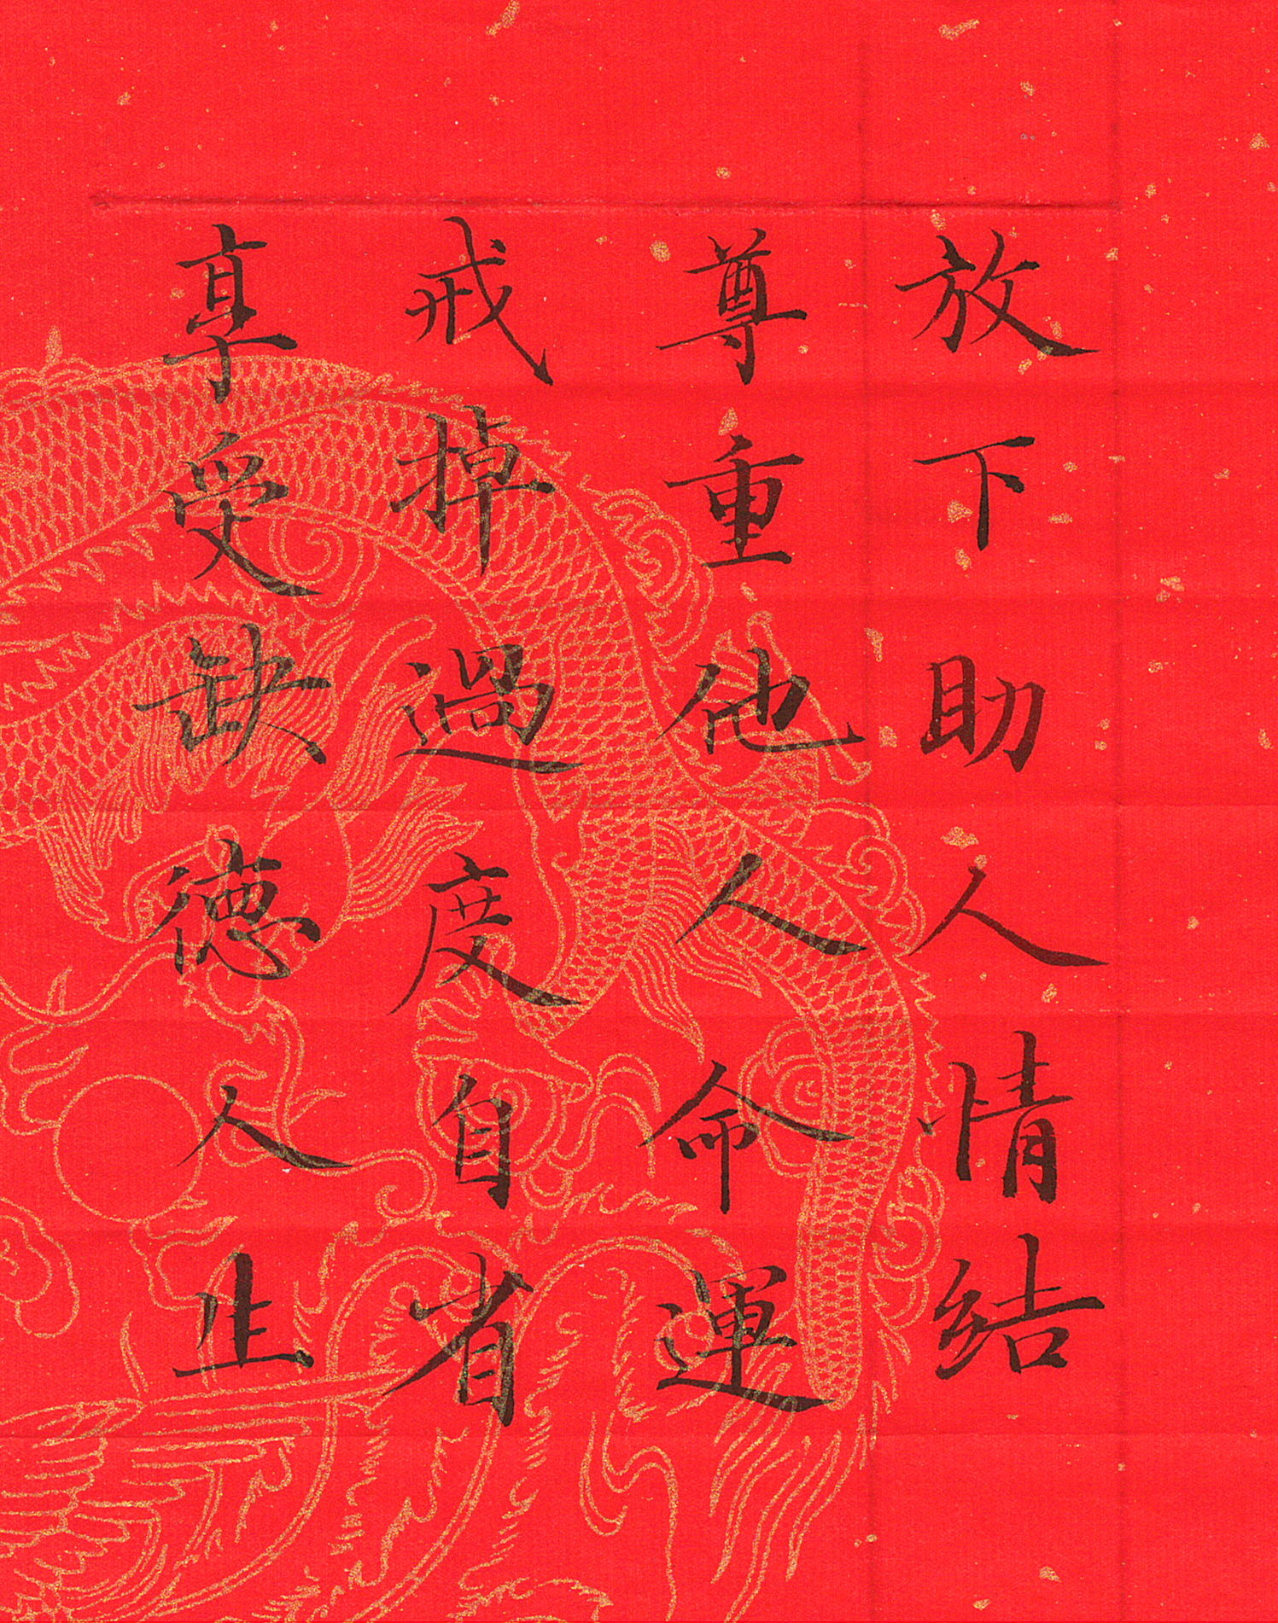 放下助人情結
尊重他人命運
戒掉過度自省
享受缺德人生